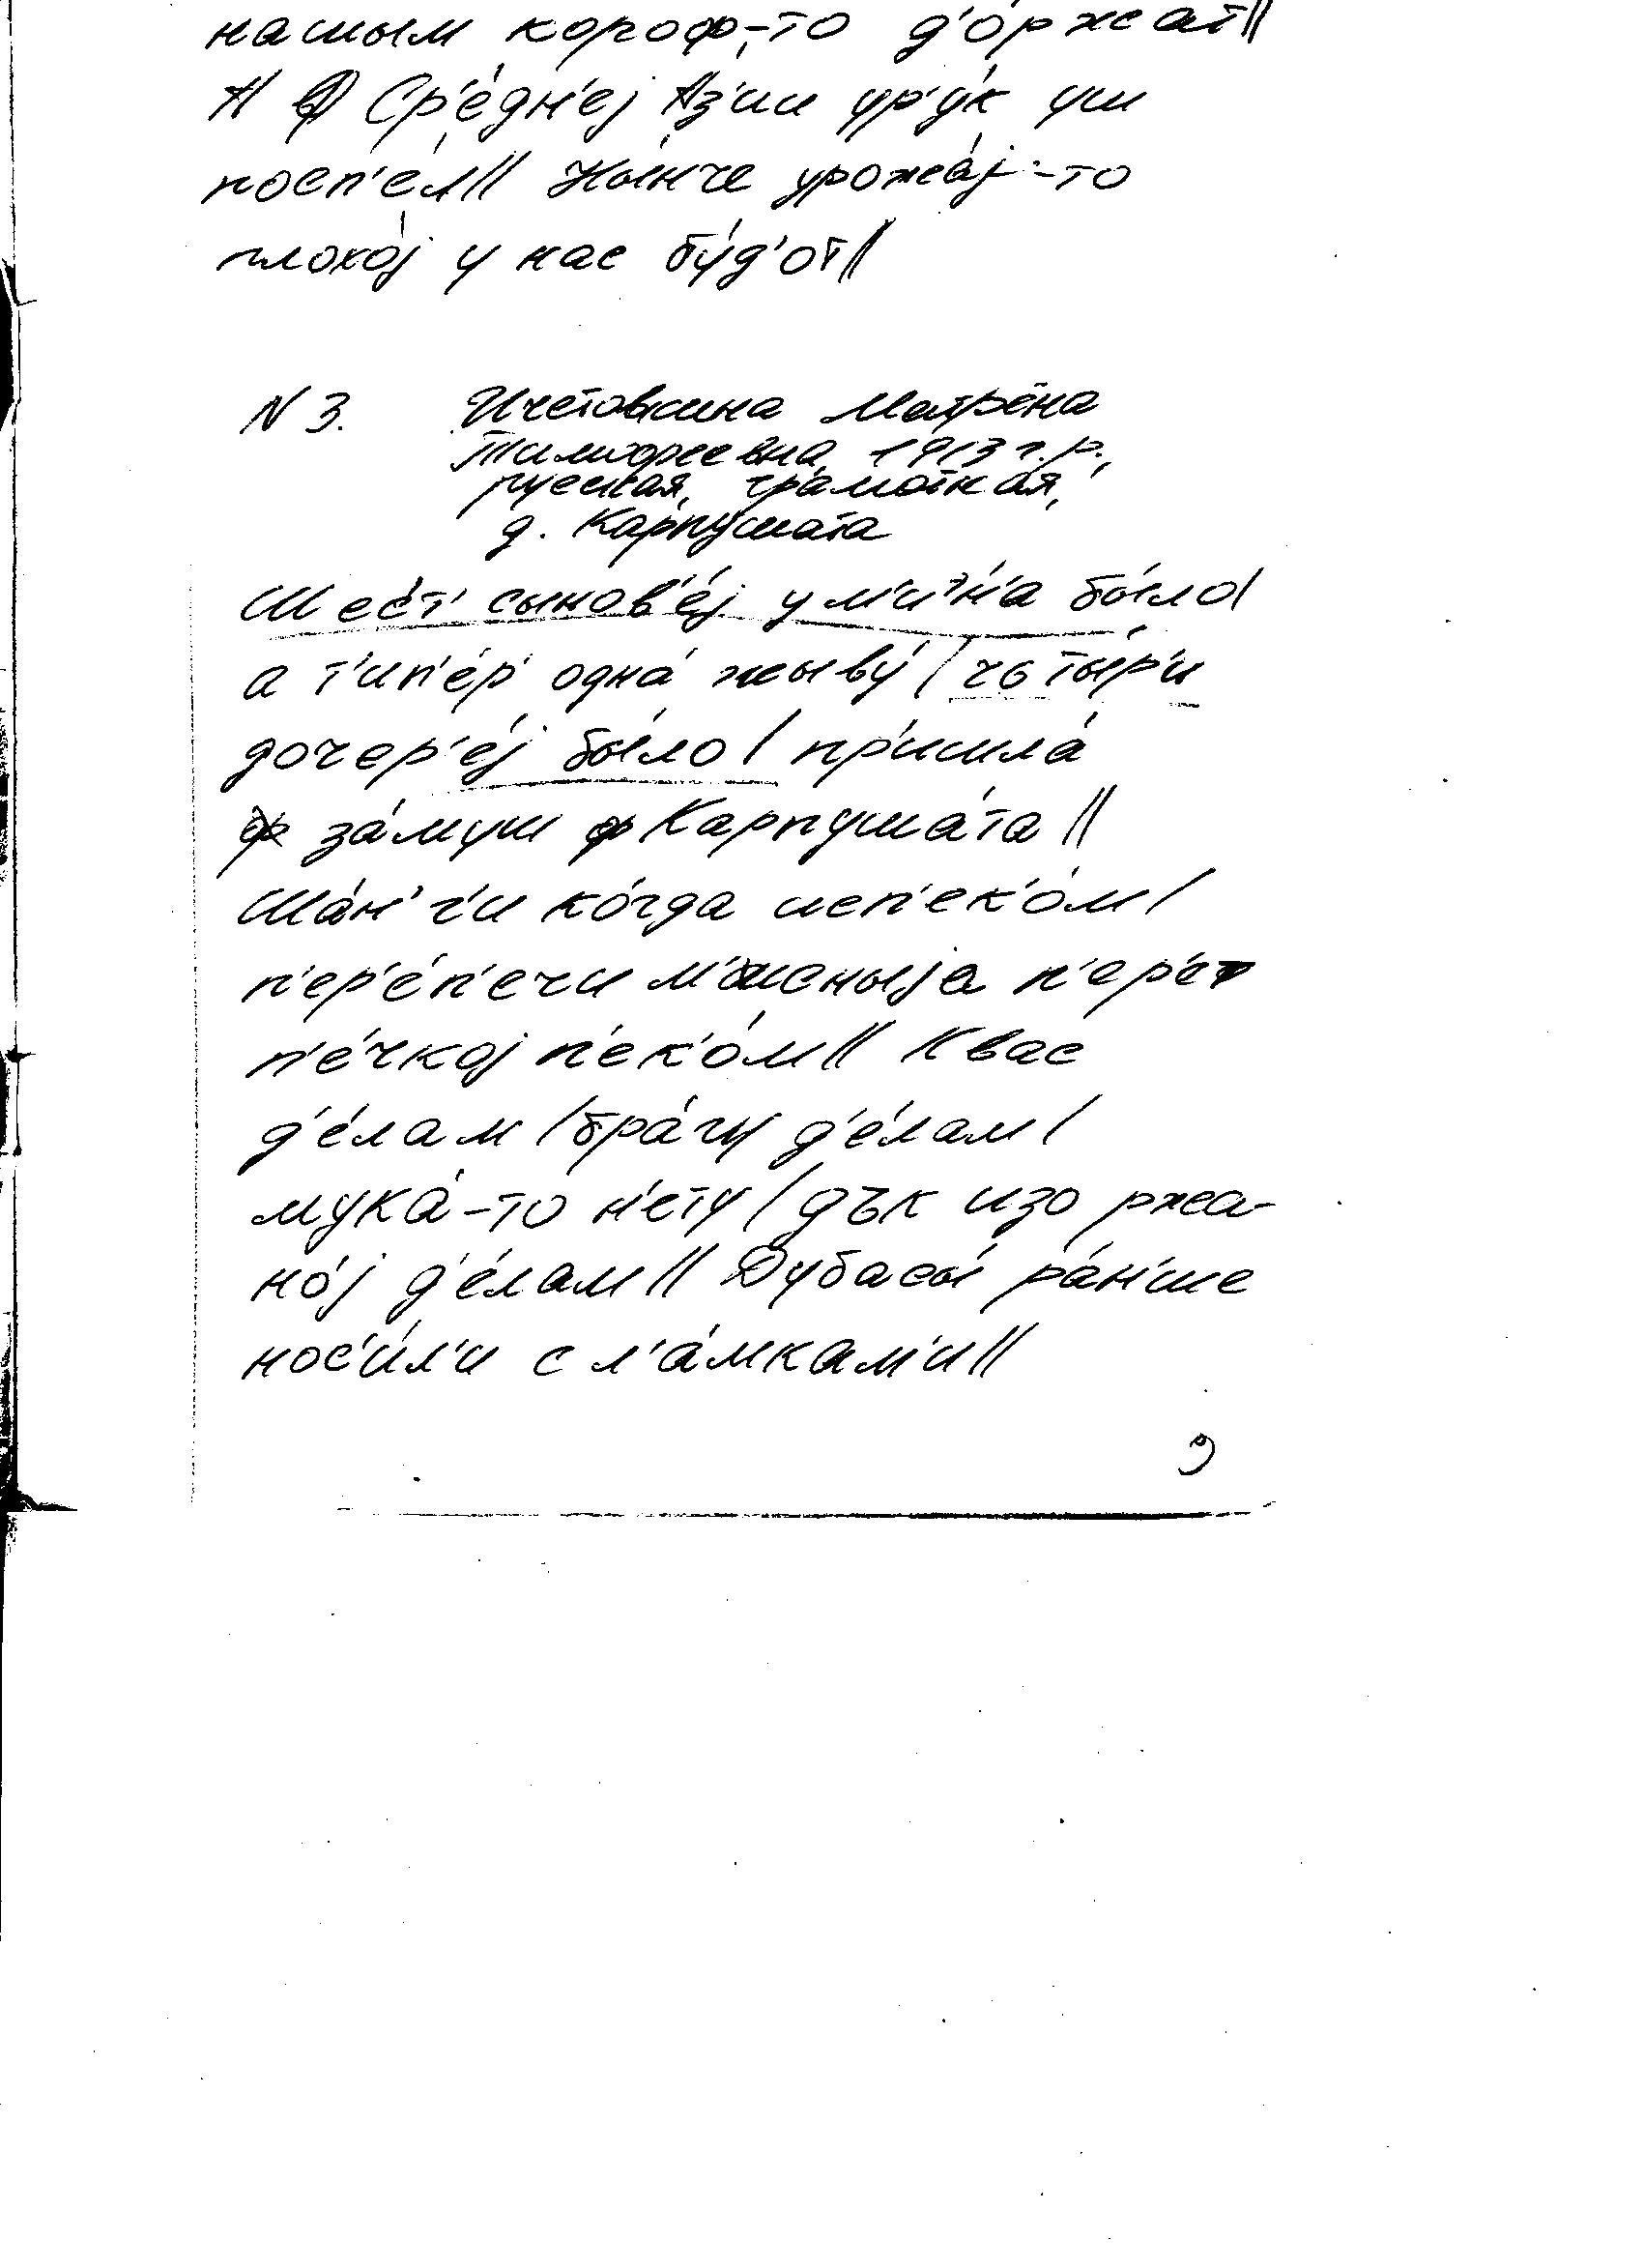 нашым короф-то д'о́ржат||
А ф Ср'е́дн'еј А́з'ии ур'у́к уш
посп'е́л|| Ны́нче урожа́ј-то
плохо́ј у нас бу́д'от||
N 3. Ичетовкина Матрёна
Тимофеевна, 1913 г.р.,
русская, грамотная,
д. Карпушата
Шест' сынов'е́ј у м'ин'а́ бы́ло|
а т'ип'е́р' одна́ жыву́ | четы́р'и
дочер'е́ј бы́ло | пр'ишла́
за́муш ф Карпуша́та ||
Ша́н'г'и ко́гда исп'ек'о́м |
п'ер'е́п'ечи м'а́сныја п'ер'ет
п'е́чкој п'ек'о́м|| Квас
д'е́лам | бра́гу д'е́лам |
мука́-то н'е́ту | дък изо ржа-
но́ј д'е́лам || Дубасы́ ра́н'ше
нос'и́л'и с л'а́мкам'и ||
9